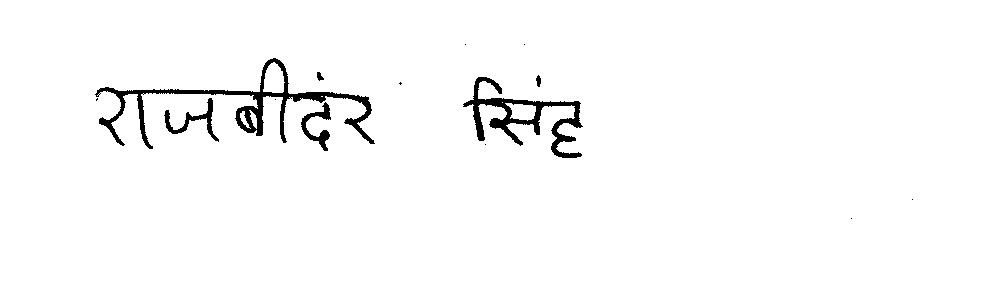 राजबीदंर सिंह